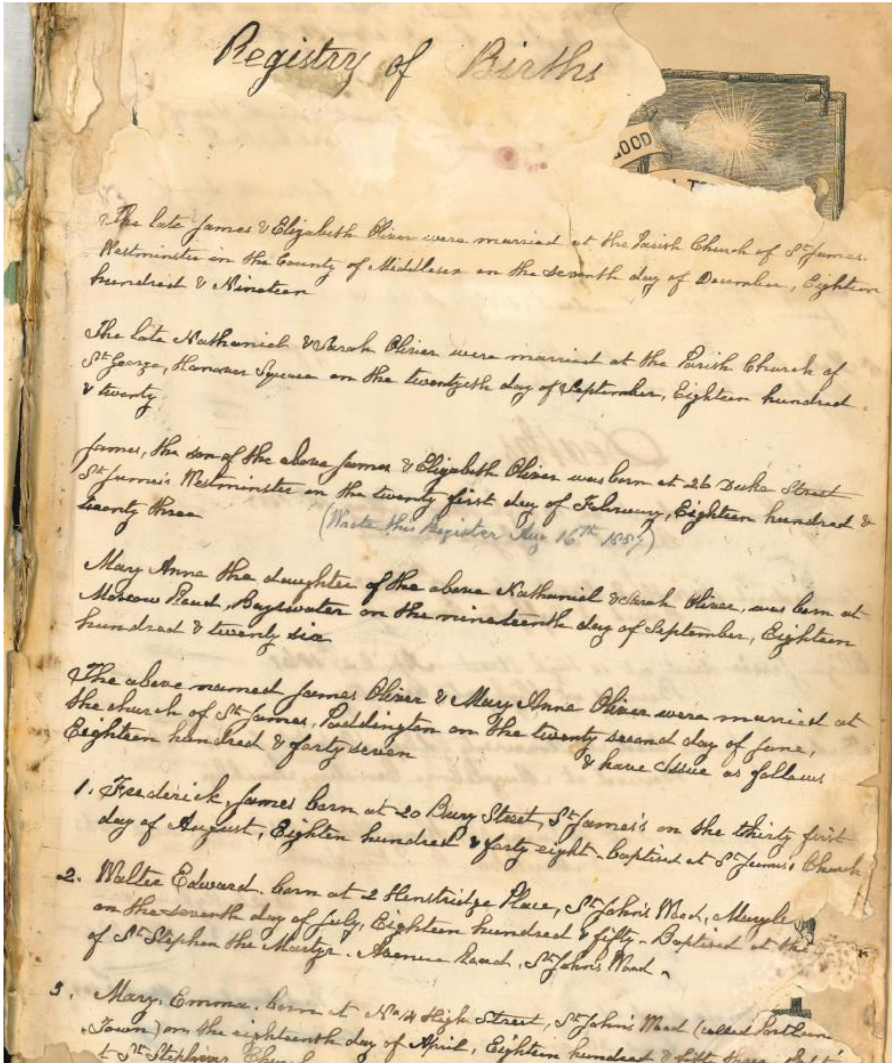 Registry of Births
LOOD
The late James & Elizabeth Oliver were married at the Parish Church of St James.
Westminster in the County of Middlesex on the seventh day of December, Eighteen
hundred & Nineteen
The late Nathaniel & Sarah Oliver were married at the Parish Church of
St George, Hanover Square on the twentyith day of September, Eighteen hundred
& twenty
James, the son of the above James & Elizabeth Oliver was born at 26 Duke Street
St James's Westminster on the twenty first day of February, Eighteen hundred &
twenty three
(Wrote this Register Aug 16th 1887)
Mary Anne the daughter of the above Nathaniel & Sarah Oliver, was born at
Moscow Road, Bayswater on the nineteenth day of September, Eighteen
hundred & twenty six
The above named James Oliver & Mary Anne Oliver were married at
the church of St James, Paddington on the twenty second day of June,
Eighteen hundred & forty seven & have issue as follows
1. Frederick, James born at 20 Bury Street, St James's on the thirty first
day of August, Eighteen hundred & forty eight - baptised at St James's Church
2. Walter Edward. born at 2 Henstridge Place, St John's Wood, Maryle
on the seventh day of July, Eighteen hundred & fifty - Baptised at the
of St Stephen the Martyr. Avenue Road, St John's Wood
3. Mary, Emma. born at No 14 High Street, St John's Wood (called Portland
Town) on the eighteenth day of April, Eighteen hundred & fifty three
at St Stephens Church